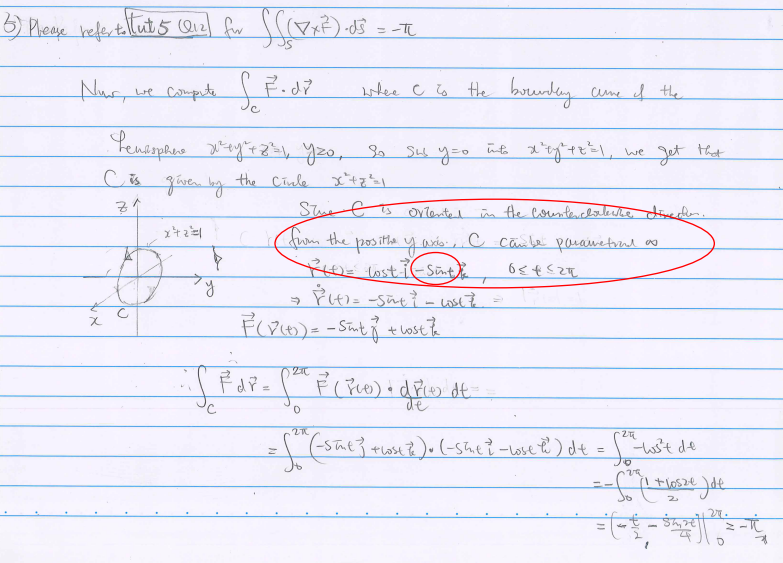 5) Please refer to Tut 5 Q12 for ∬_S (∇×F⃗)·dS⃗ = -π
Now, we compute ∫_C F⃗·dr⃗ where C is the boundary curve of the
hemisphere x²+y²+z²=1, y≥0, so sub y=0 into x²+y²+z²=1, we get that
C is given by the circle x²+z²=1
Since C is oriented in the counterclockwise direction
from the positive y axis, C can be parametrized as
r⃗(t) = cost i⃗ - sint k⃗, 0≤t≤2π
⇒ r⃗'(t) = -sint i⃗ - cost k⃗
F⃗(r⃗(t)) = -sint j⃗ + cost k⃗
z
x²+z²=1
y
x
C
∴ ∫_C F⃗ dr⃗ = ∫_0^{2π} F⃗(r⃗(t)) · dr⃗(t)/dt dt
= ∫_0^{2π} (-sint j⃗ + cost k⃗)·(-sint i⃗ - cost k⃗) dt = ∫_0^{2π} -cos²t dt
= -∫_0^{2π} (1+cos2t / 2) dt
= [-t/2 - sin2t/4]|_0^{2π} = -π